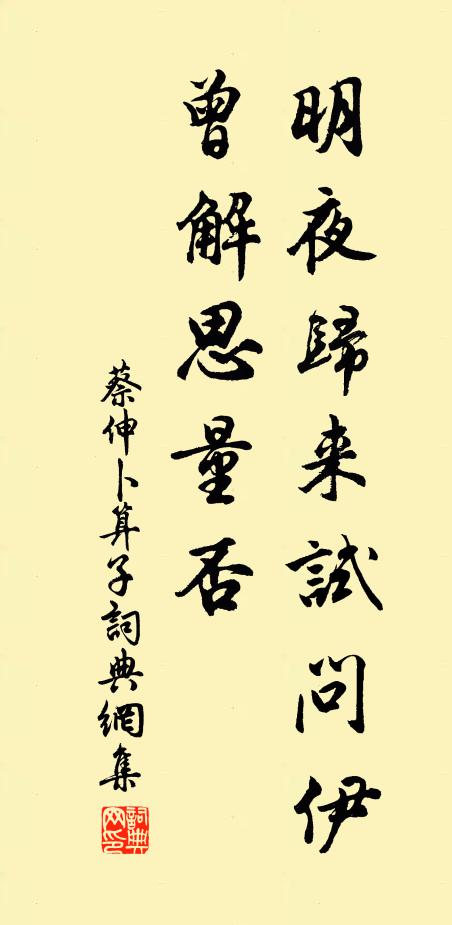 明夜歸来試問伊
曾解思量否
蔡伸卜算子詞典網集
詞典网印